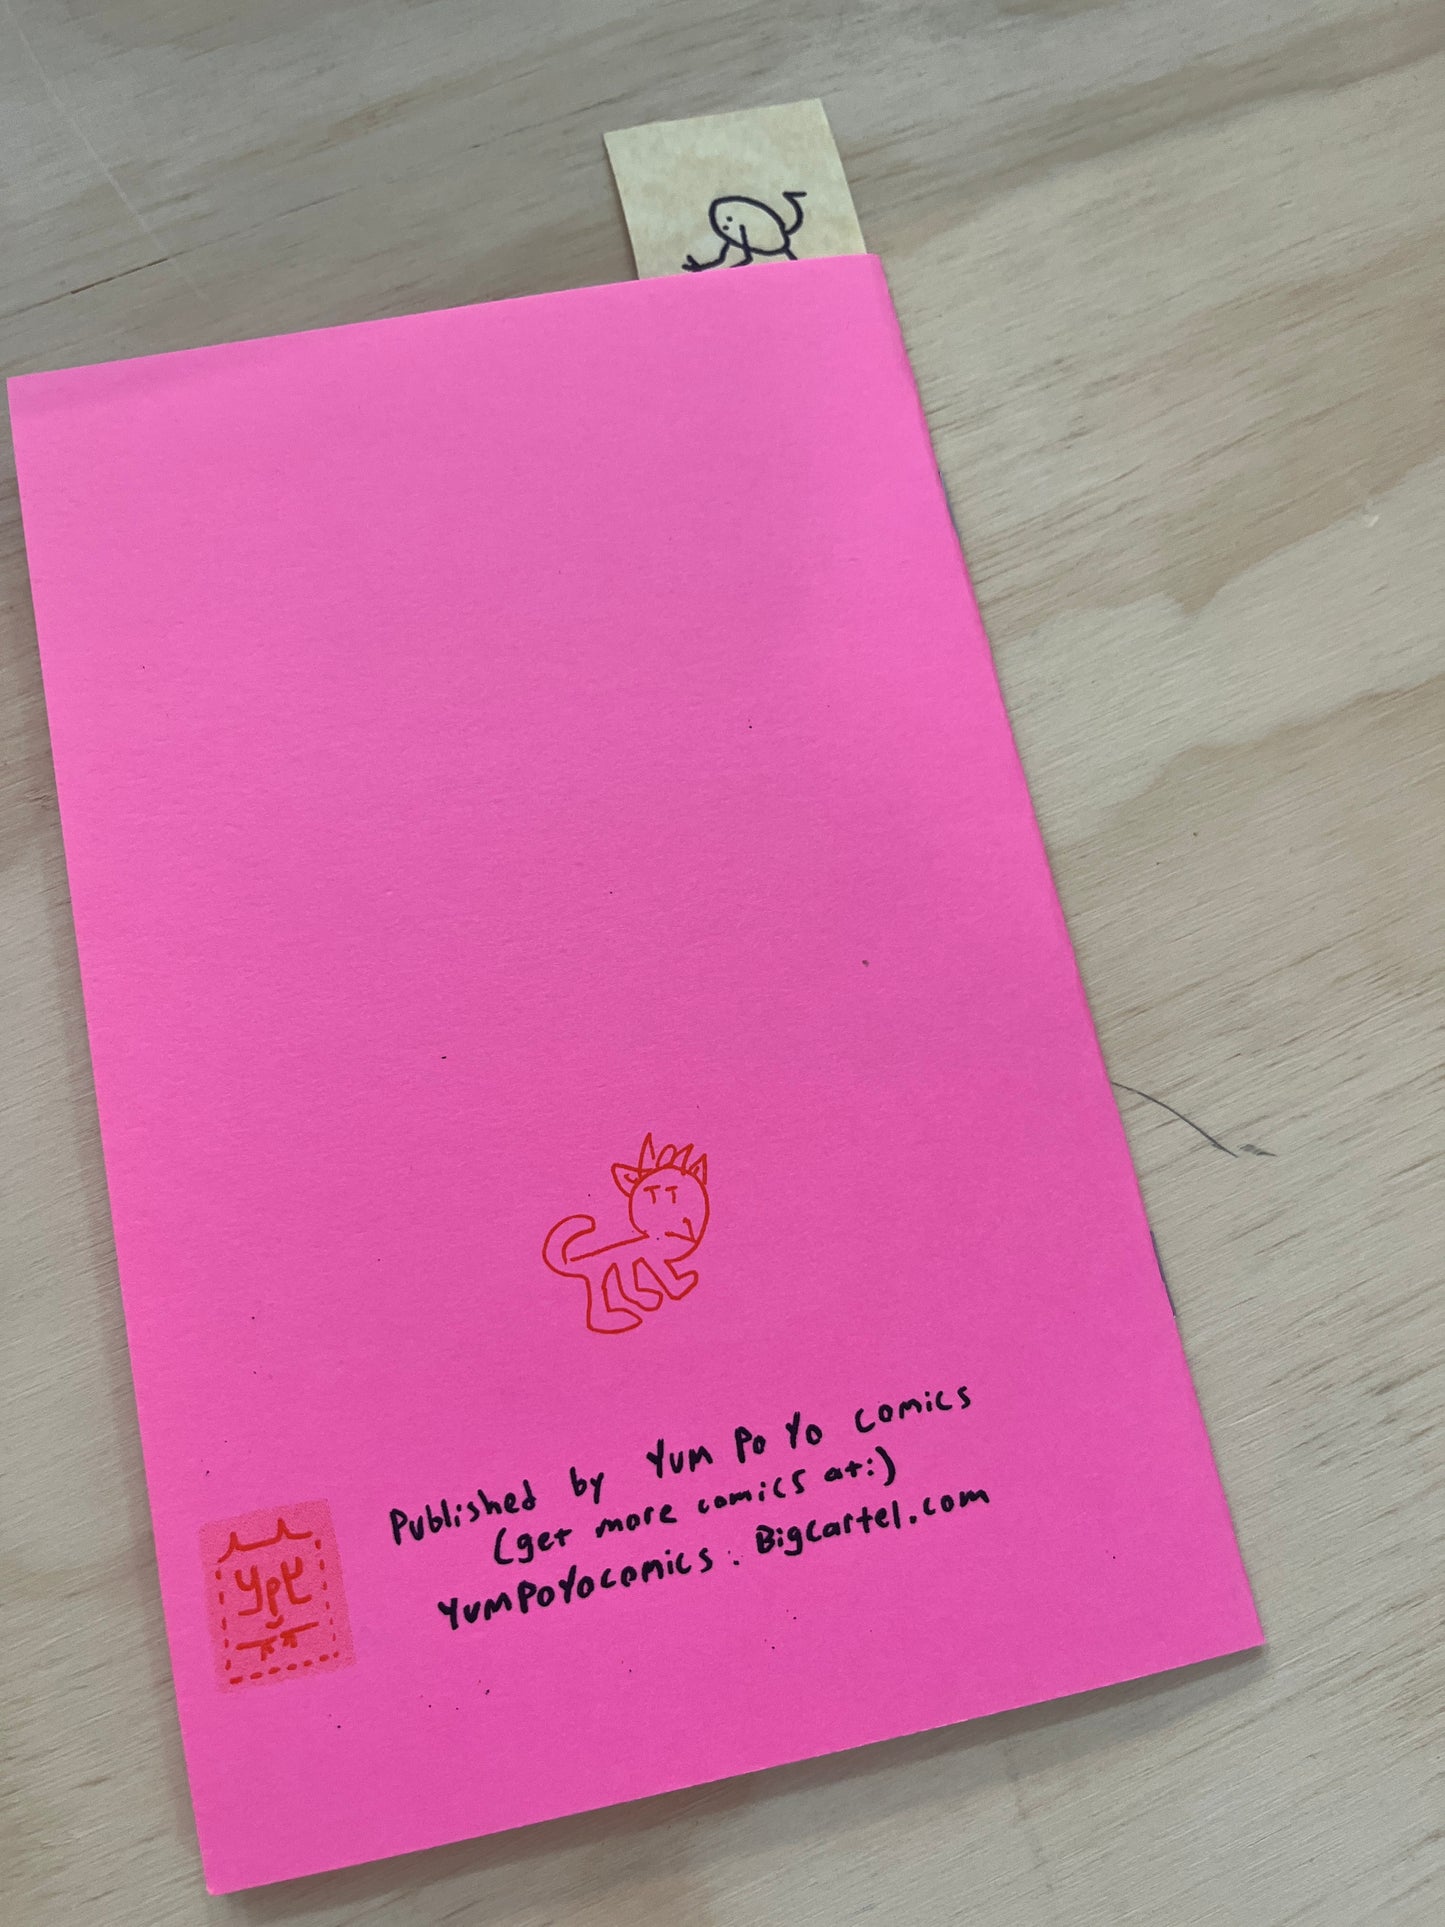 Published by Yum Po Yo comics
(get more comics at:)
YumPoYocomics.Bigcartel.com
ypy